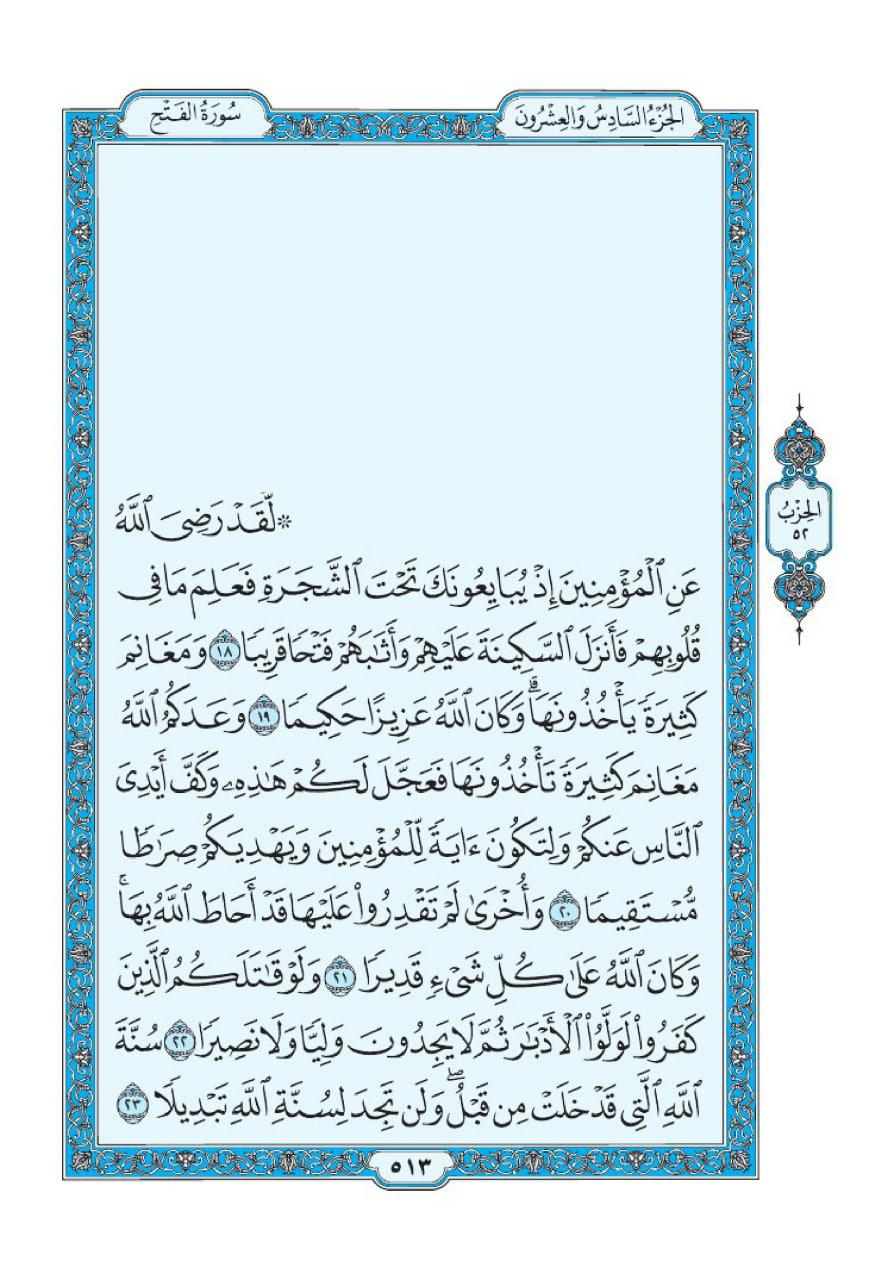 الجُزْءُ السَّادِسُ وَالعِشْرُونَ
سُورَةُ الفَتْحِ
۞ لَّقَدْ رَضِيَ ٱللَّهُ
عَنِ ٱلْمُؤْمِنِينَ إِذْ يُبَايِعُونَكَ تَحْتَ ٱلشَّجَرَةِ فَعَلِمَ مَا فِي
قُلُوبِهِمْ فَأَنزَلَ ٱلسَّكِينَةَ عَلَيْهِمْ وَأَثَٰبَهُمْ فَتْحًا قَرِيبًا ١٨ وَمَغَانِمَ
كَثِيرَةً يَأْخُذُونَهَاۗ وَكَانَ ٱللَّهُ عَزِيزًا حَكِيمًا ١٩ وَعَدَكُمُ ٱللَّهُ
مَغَانِمَ كَثِيرَةً تَأْخُذُونَهَا فَعَجَّلَ لَكُمْ هَٰذِهِۦ وَكَفَّ أَيْدِيَ
ٱلنَّاسِ عَنكُمْ وَلِتَكُونَ ءَايَةً لِّلْمُؤْمِنِينَ وَيَهْدِيَكُمْ صِرَٰطًا
مُّسْتَقِيمًا ٢٠ وَأُخْرَىٰ لَمْ تَقْدِرُوا۟ عَلَيْهَا قَدْ أَحَاطَ ٱللَّهُ بِهَاۚ
وَكَانَ ٱللَّهُ عَلَىٰ كُلِّ شَيْءٍ قَدِيرًا ٢١ وَلَوْ قَٰتَلَكُمُ ٱلَّذِينَ
كَفَرُوا۟ لَوَلَّوُا۟ ٱلْأَدْبَٰرَ ثُمَّ لَا يَجِدُونَ وَلِيًّا وَلَا نَصِيرًا ٢٢ سُنَّةَ
ٱللَّهِ ٱلَّتِي قَدْ خَلَتْ مِن قَبْلُۖ وَلَن تَجِدَ لِسُنَّةِ ٱللَّهِ تَبْدِيلًا ٢٣
الحِزْبُ
٥٢
٥١٣